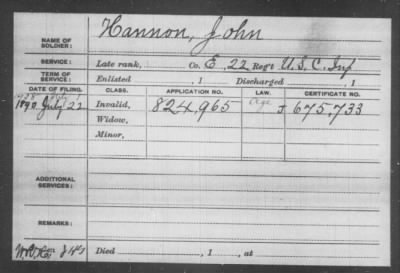 NAME OF SOLDIER: Hannon, John
SERVICE: Late rank, Co. E, 22 Reg't U.S.C. Inf
TERM OF SERVICE: Enlisted , 1 Discharged , 1
DATE OF FILING. CLASS. APPLICATION NO. LAW. CERTIFICATE NO.
1890 July 22 Invalid, 824,965 Age 675,733
Widow,
Minor,
ADDITIONAL SERVICES:
REMARKS:
Died , 1 , at